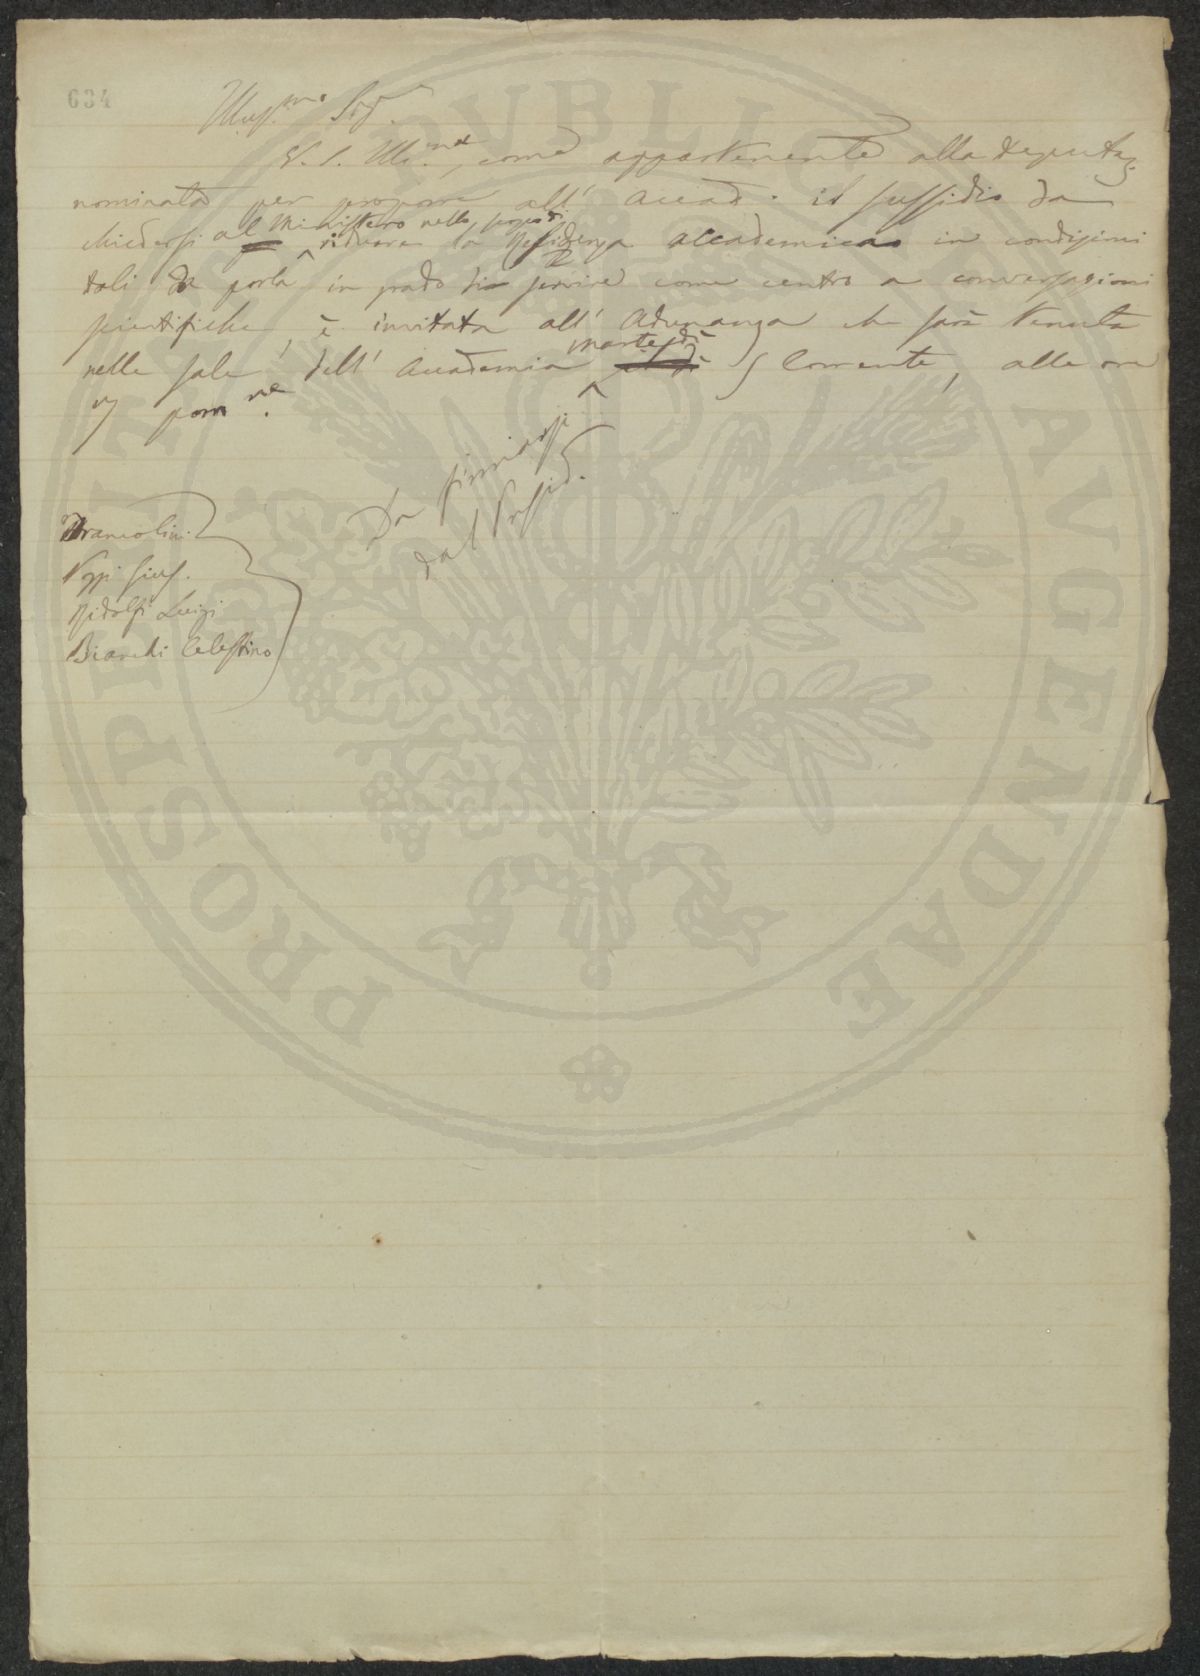 634
Illus.mo Sig.
V. S. Ill.ma, come appartenente alla deputaz.
nominata per proporre all' Accad. il sussidio da
chiedersi al Ministero nello scopo di ridurre la Residenza accademica in condizioni
tali da porla in grado di servire come centro a conversazioni
scientifiche, è invitata all' Adunanza che sarà tenuta
nelle sale dell' Accademia martedì 5 Corrente, alle ore
7 pom.ne.
Da firmarsi
dal Presid.
Francolini
Poggi Gius.
Ridolfi Luigi
Bianchi Celestino
PROSPERITATI PVBLICAE AVGENDAE